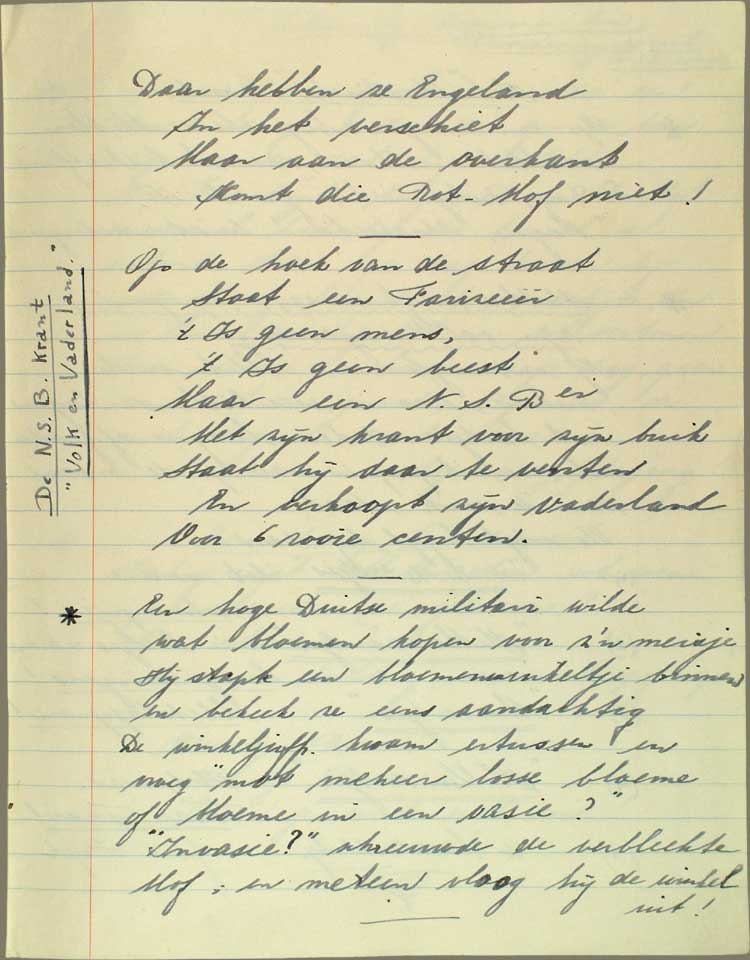 Daar hebben ze Engeland
In het verschiet
Maar aan de overkant
Komt die Rot-Mof niet!
Op de hoek van de straat
Staat een Fariseeër
't Is geen mens,
't Is geen beest
Maar een N.S.Ber
Met zijn krant voor zijn buik
Staat hij daar te venten
En verkoopt zijn vaderland
Voor 6 rooie centen.
De N.S.B. Krant
"Volk en Vaderland."
*
Een hoge Duitse militair wilde
wat bloemen kopen voor z'n meisje
Hij stapte een bloemenwinkeltje binnen
en bekeek ze eens aandachtig
De winkeljuff. kwam ertussen en
vroeg "mot meheer losse bloeme
of bloeme in een vasie?"
"Invasie?" schreeuwde de verbleekte
Mof, en meteen vloog hij de winkel
uit!